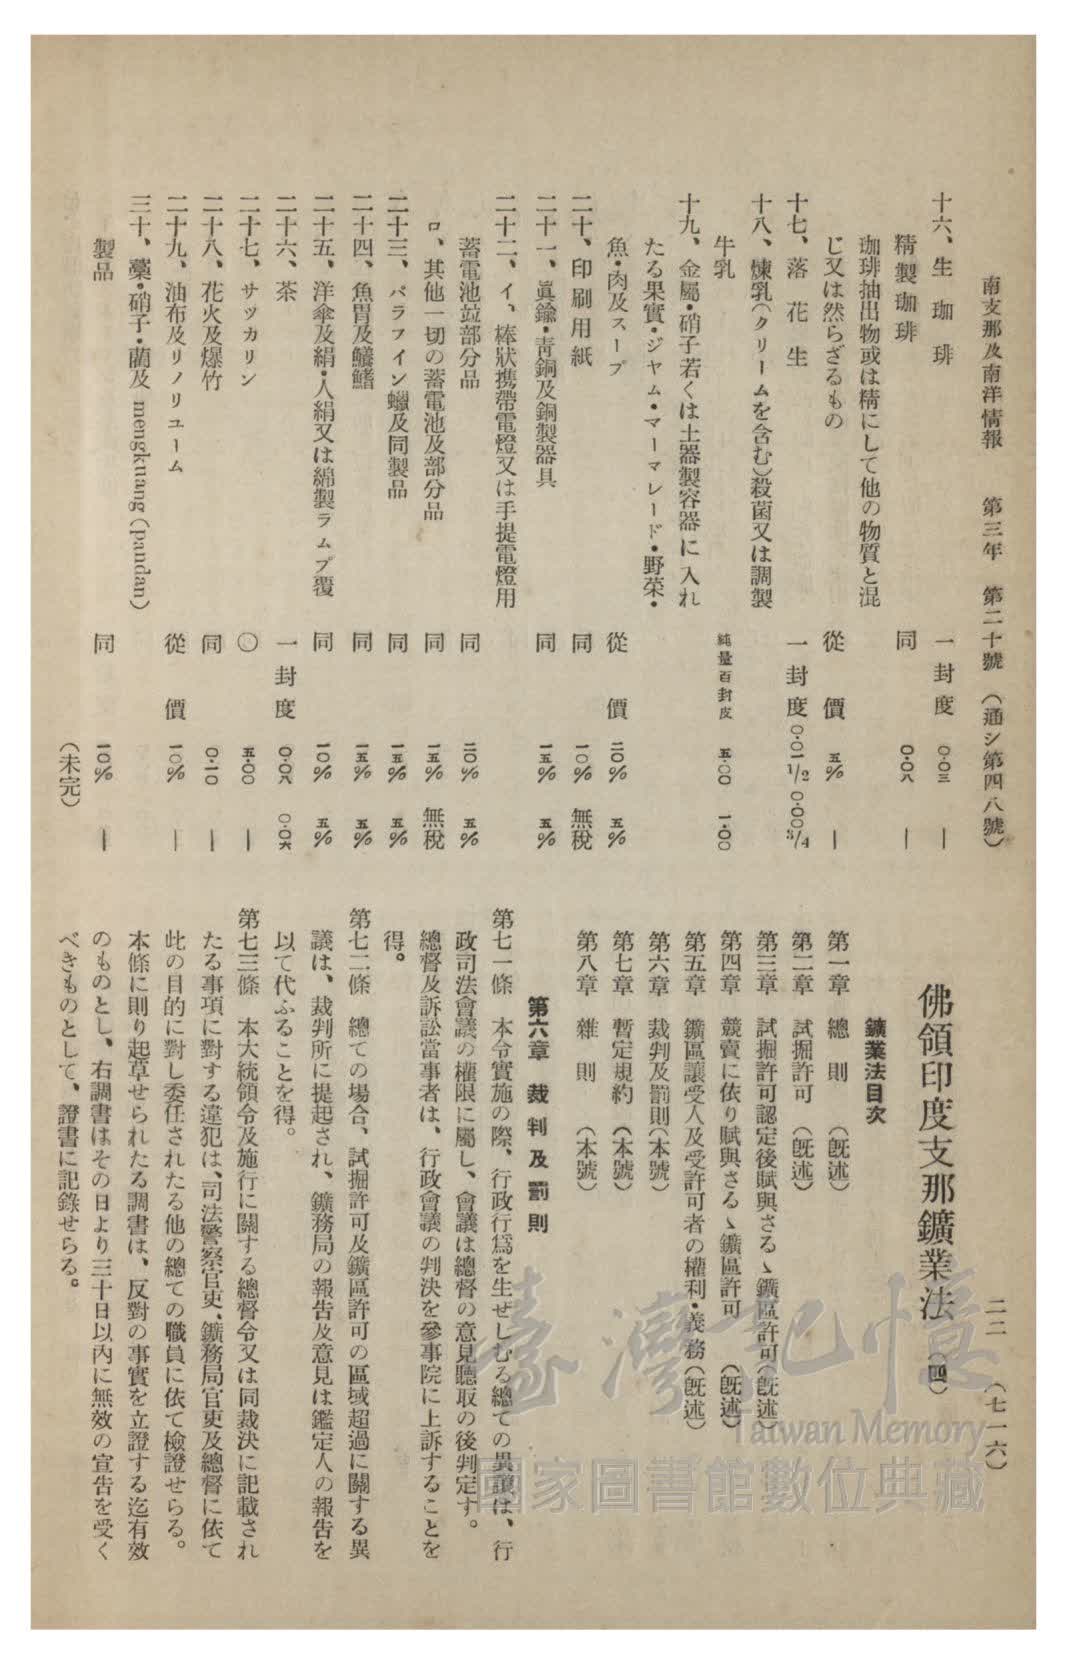 南支那及南洋情報　第三年　第二十號　（通シ第四八號）
二二　（七一六）
十六、生珈琲　一封度　〇・〇三　—
精製珈琲　同　〇・〇八　—
珈琲抽出物或は精にして他の物質と混
じ又は然らざるもの　從價　五%　—
十七、落花生　一封度　〇・〇一1/2　〇・〇〇3/4
十八、煉乳（クリームを含む）殺菌又は調製
牛乳　純量百封度　五・〇〇　一・〇〇
十九、金屬・硝子若くは土器製容器に入れ
たる果實・ジヤム・マーマレード・野菜・
魚・肉及スープ　從價　二〇%　五%
二十、印刷用紙　同　一〇%　無税
二十一、眞鍮・青銅及銅製器具　同　一五%　五%
二十二、イ、棒狀携帶電燈又は手提電燈用
蓄電池竝部分品　同　二〇%　五%
ロ、其他一切の蓄電池及部分品　同　一五%　無税
二十三、パラフイン蠟及同製品　同　一五%　五%
二十四、魚胃及鱶鰭　同　一五%　五%
二十五、洋傘及絹・人絹又は綿製ラムプ覆　同　一〇%　五%
二十六、茶　一封度　〇・〇八　〇・〇六
二十七、サツカリン　〇　五・〇〇　—
二十八、花火及爆竹　同　〇・一〇　—
二十九、油布及リノリユーム　從價　一〇%　—
三十、藁・硝子・藺及 mengkuang (pandan)
製品　同　一〇%　—
（未完）
佛領印度支那鑛業法（四）
鑛業法目次
第一章　總則　（既述）
第二章　試掘許可　（既述）
第三章　試掘許可認定後賦與さるゝ鑛區許可（既述）
第四章　競賣に依り賦與さるゝ鑛區許可　（既述）
第五章　鑛區讓受人及受許可者の權利・義務（既述）
第六章　裁判及罰則（本號）
第七章　暫定規約　（本號）
第八章　雜則　（本號）
第六章　裁判及罰則
第七一條　本令實施の際、行政行爲を生ぜしむる總ての異議は、行
政司法會議の權限に屬し、會議は總督の意見聽取の後判定す。
總督及訴訟當事者は、行政會議の判決を參事院に上訴することを
得。
第七二條　總ての場合、試掘許可及鑛區許可の區域超過に關する異
議は、裁判所に提起され、鑛務局の報告及意見は鑑定人の報告を
以て代ふることを得。
第七三條　本大統領令及施行に關する總督令又は同裁決に記載され
たる事項に對する違犯は、司法警察官吏、鑛務局官吏及總督に依て
此の目的に對し委任されたる他の總ての職員に依て檢證せらる。
本條に則り起草せられたる調書は、反對の事實を立證する迄有效
のものとし、右調書はその日より三十日以内に無效の宣告を受く
べきものとして、證書に記錄せらる。
臺灣記憶
Taiwan Memory
國家圖書館數位典藏